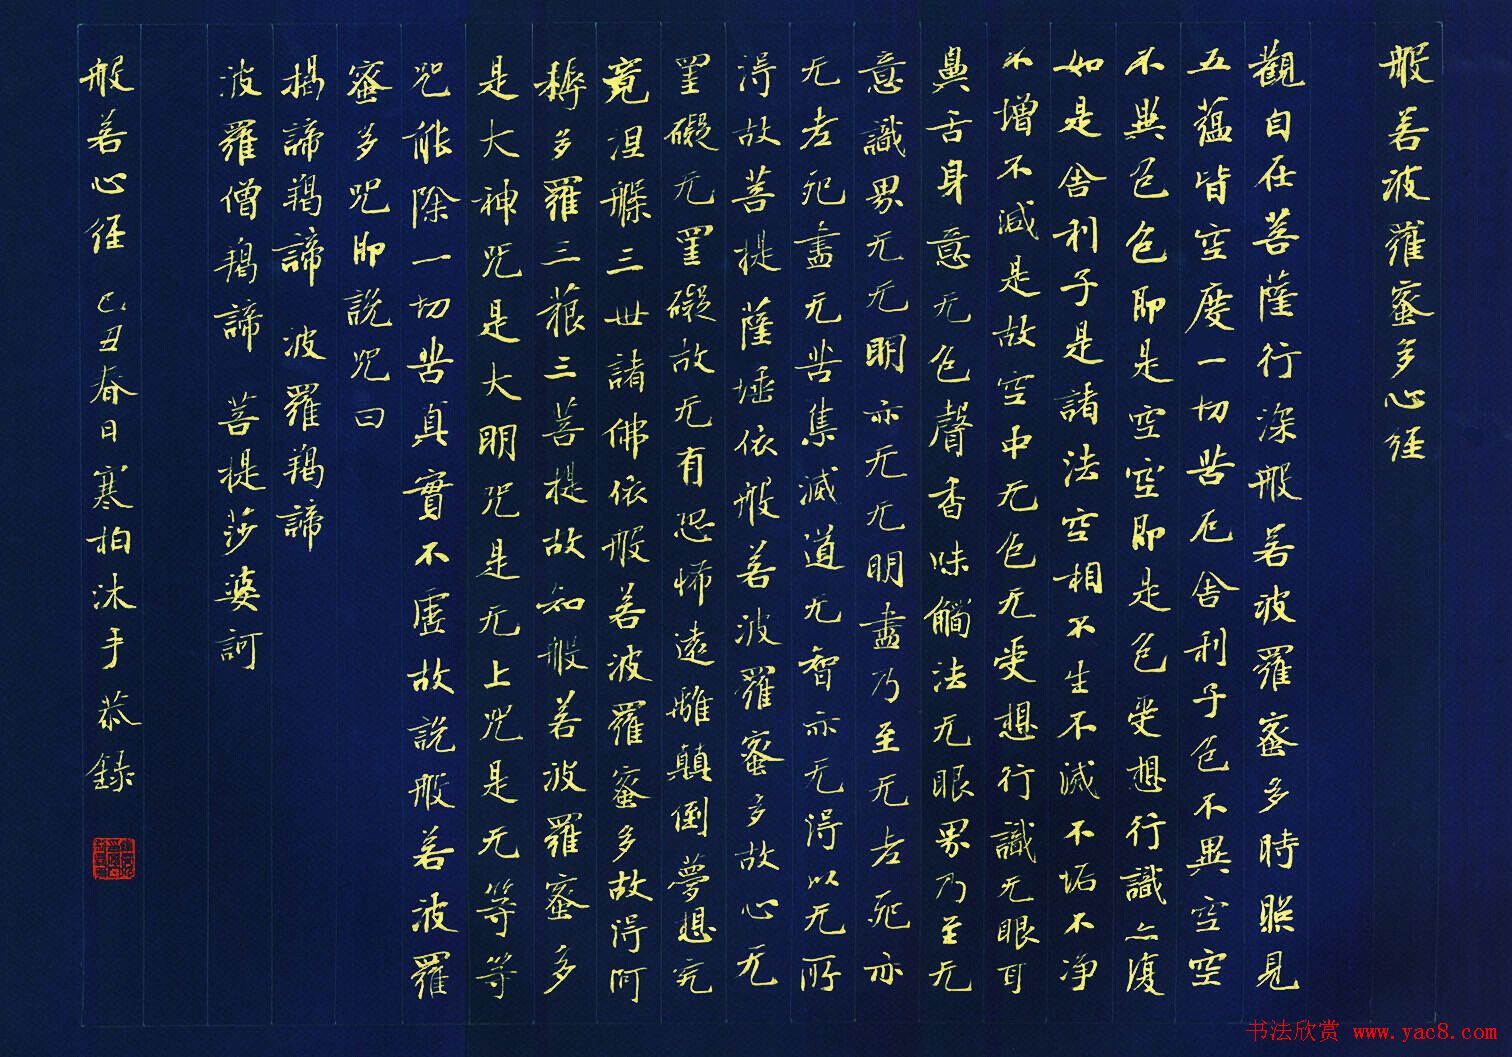 般若波羅蜜多心經
觀自在菩薩行深般若波羅蜜多時照見
五蘊皆空度一切苦厄舍利子色不異空空
不異色色即是空空即是色受想行識亦復
如是舍利子是諸法空相不生不滅不垢不净
不增不減是故空中无色无受想行識无眼耳
鼻舌身意无色聲香味觸法无眼界乃至无
意識界无无明亦无无明盡乃至无老死亦
无老死盡无苦集滅道无智亦无得以无所
得故菩提薩埵依般若波羅蜜多故心无
罣礙无罣礙故无有恐怖遠離顛倒夢想究
竟涅槃三世諸佛依般若波羅蜜多故得阿
耨多羅三藐三菩提故知般若波羅蜜多
是大神咒是大明咒是无上咒是无等等
咒能除一切苦真實不虛故說般若波羅
蜜多咒即說咒曰
揭諦羯諦 波羅羯諦
波羅僧羯諦 菩提莎婆訶
般若心經 己丑春日寒柏沐手恭錄
书法欣赏 www.yac8.com